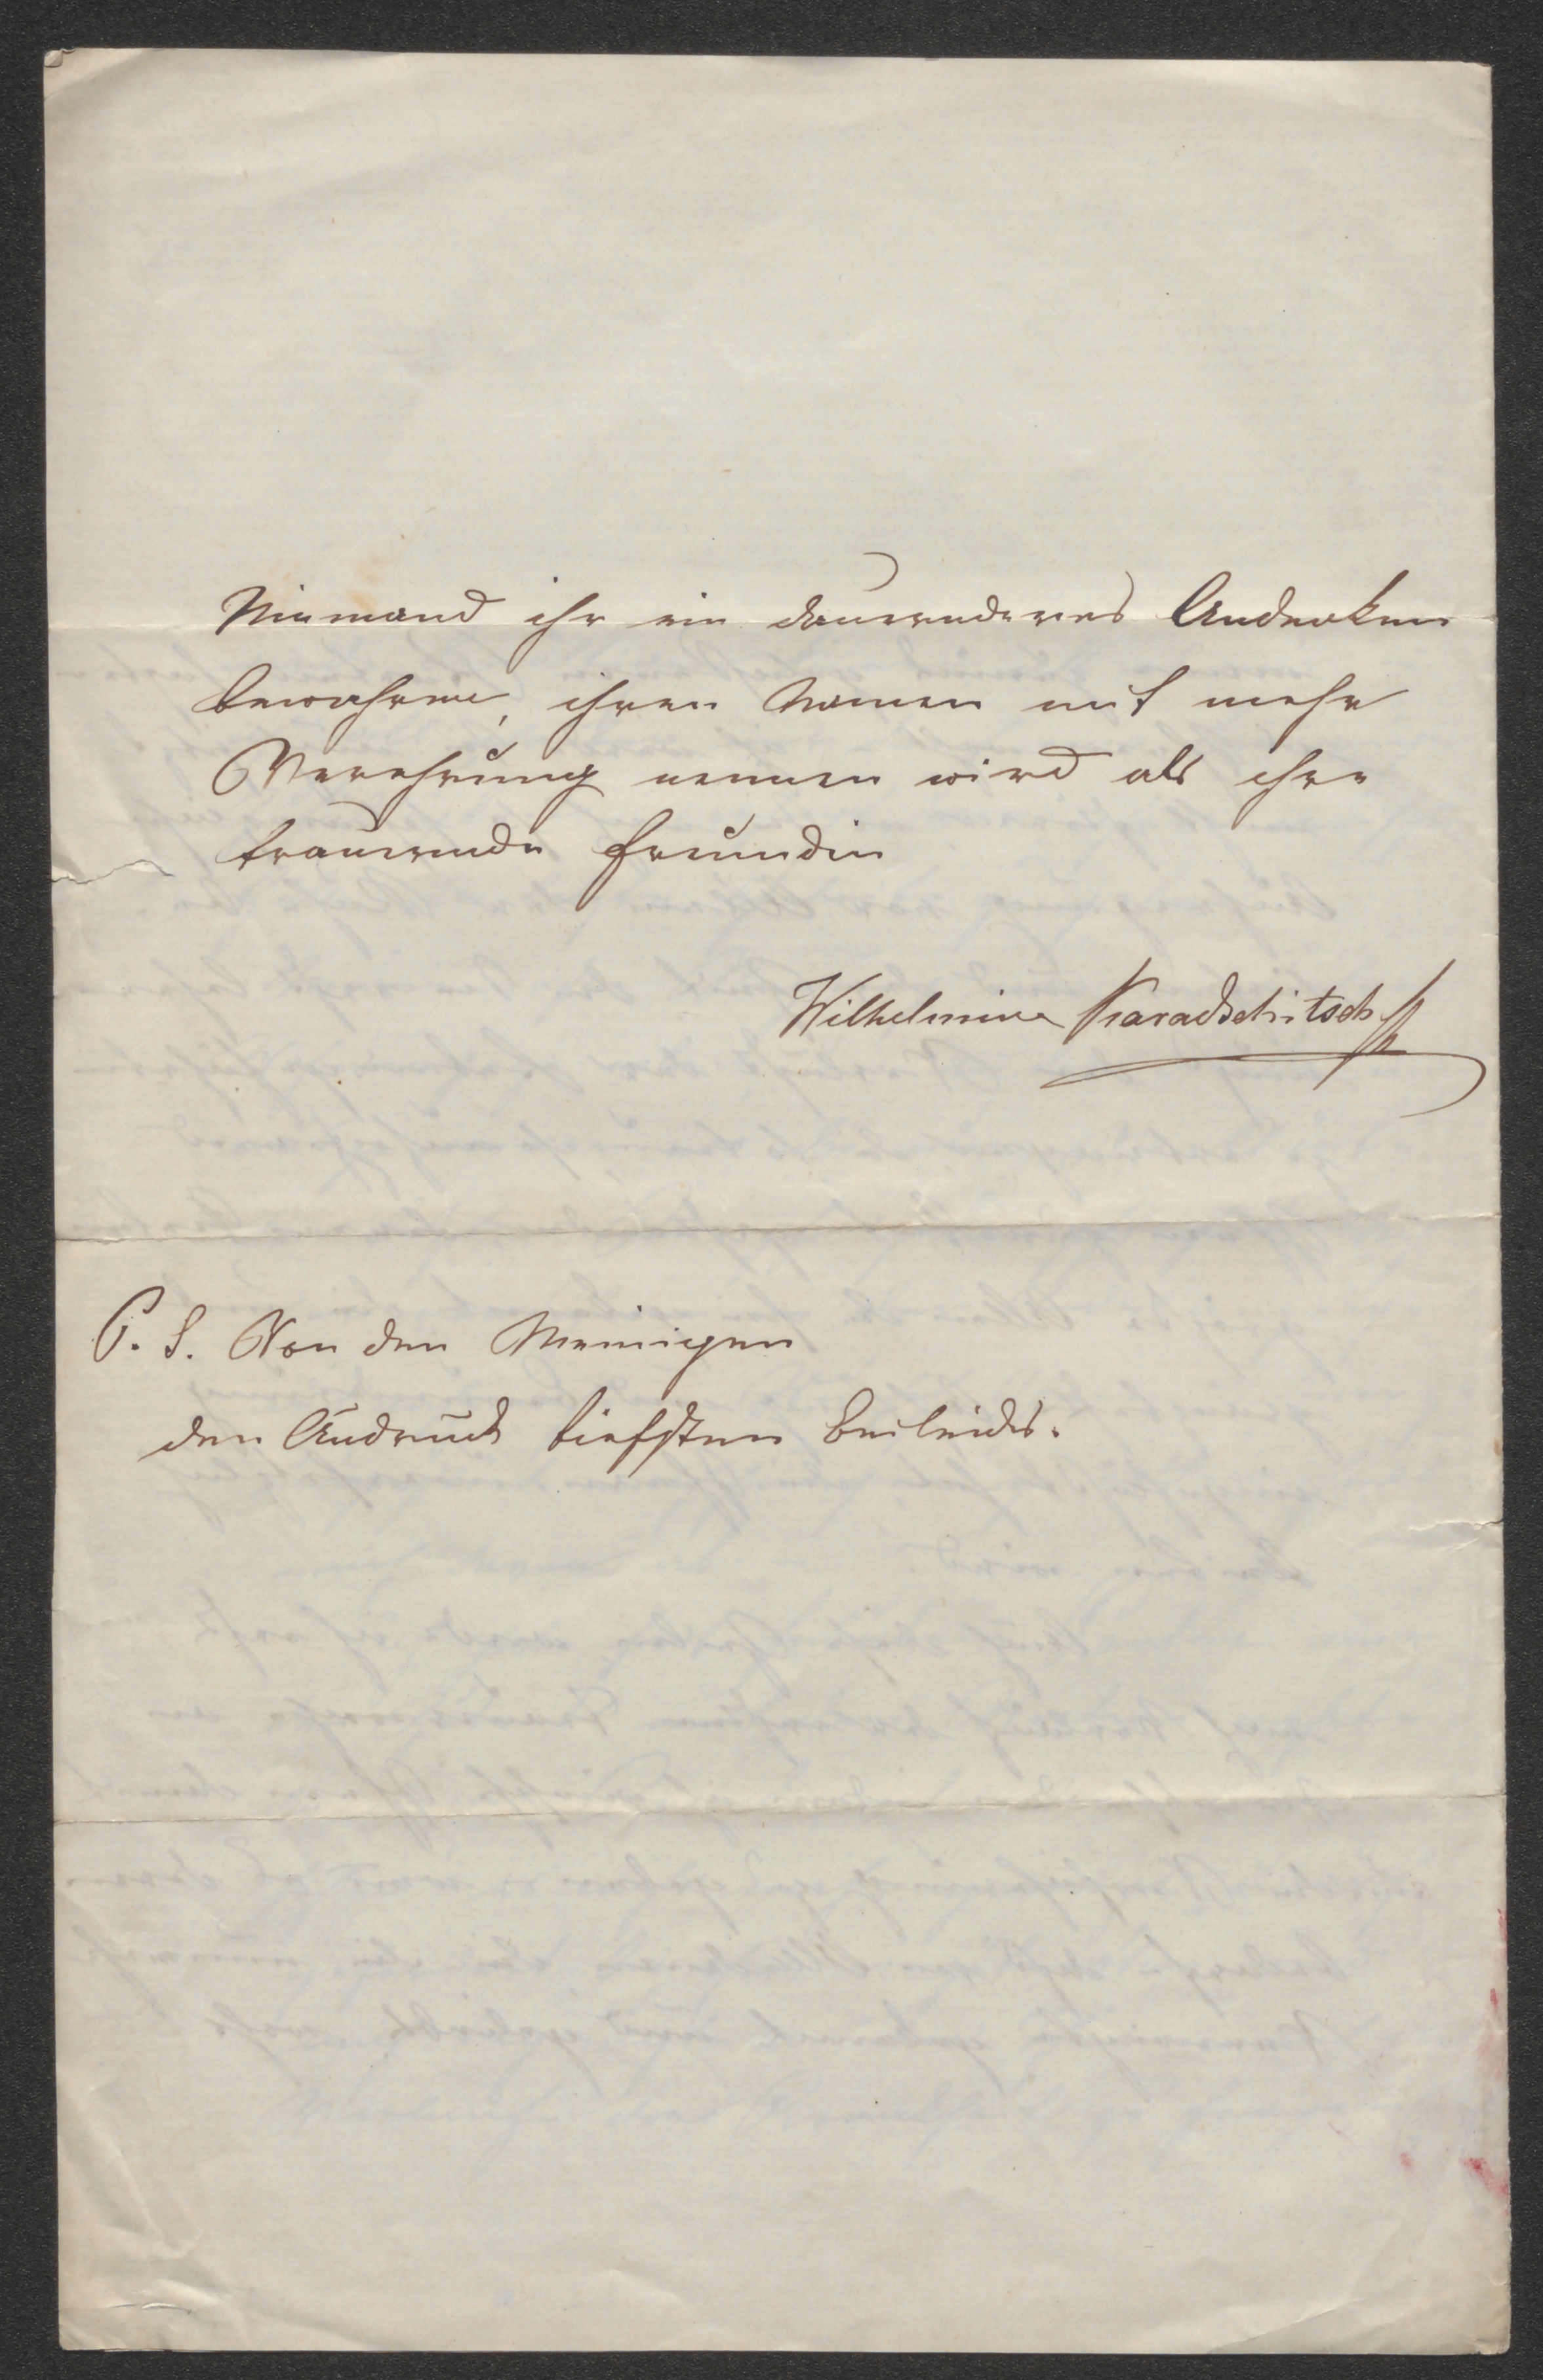 Niemand ihr ein dauernderes Andenken
bewahren, ihren Namen mit mehr
Verehrung nennen wird als ihre
trauernde Freundin
Wilhelmine Karadschitsch
P. S. Von den Meinigen
den Audruck tiefsten Beileids.